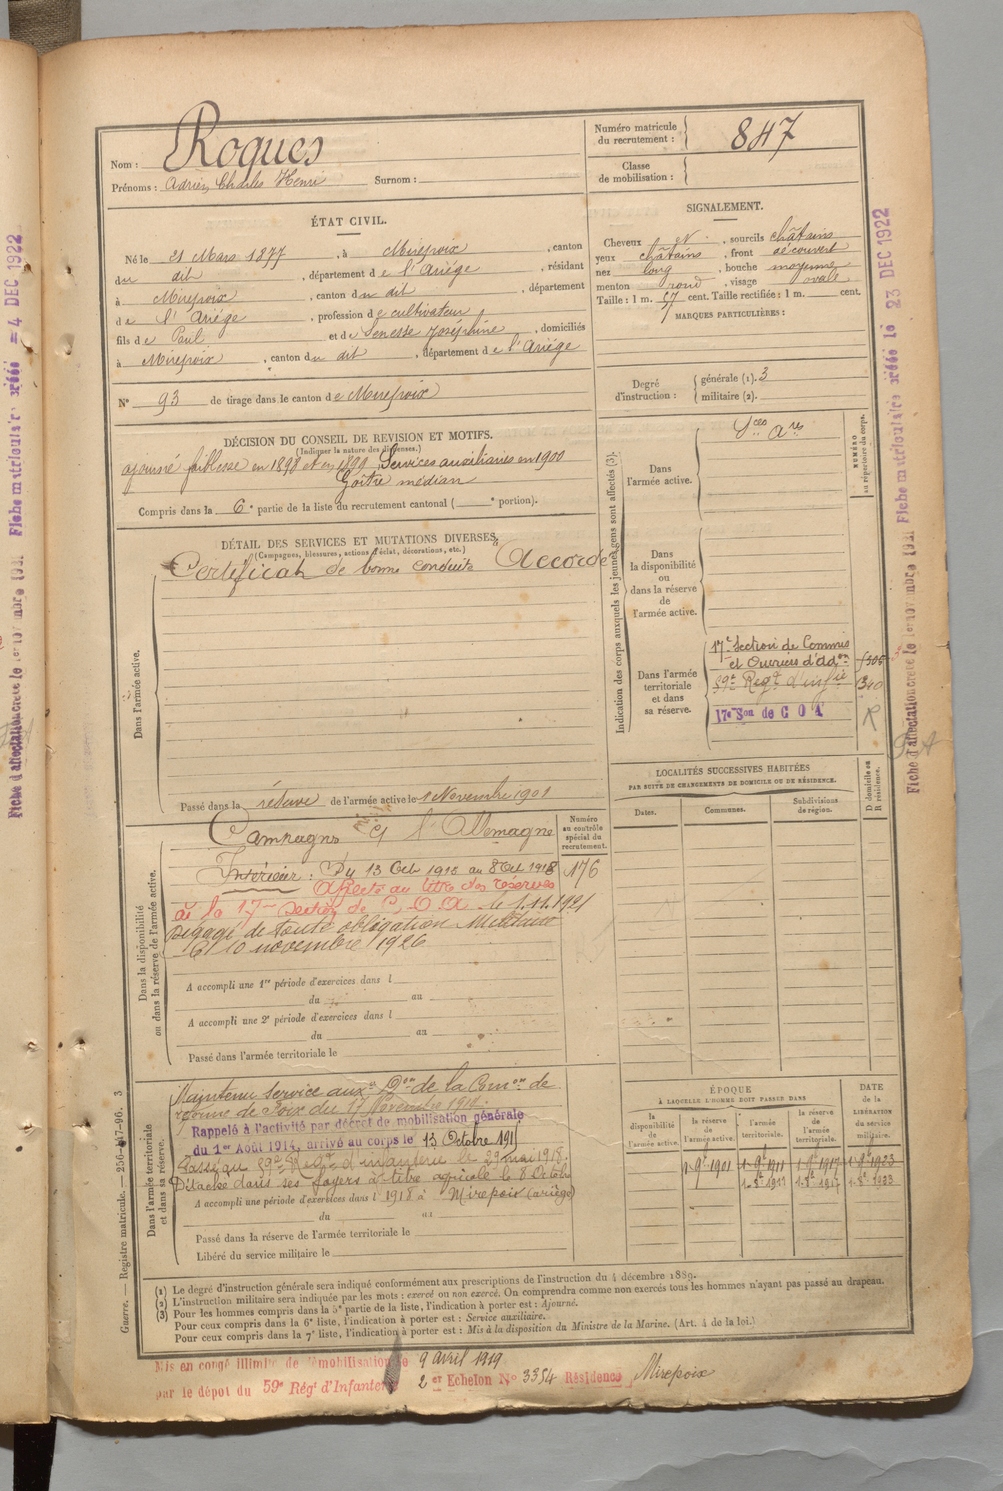 Nom : Roques
Prénoms : Adrien Charles Henri Surnom :
Numéro matricule du recrutement : 847
Classe de mobilisation :
ÉTAT CIVIL.
Né le 21 Mars 1877, à Mirepoix, canton
du dit, département de l'Ariége, résidant
à Mirepoix, canton du dit, département
de l'Ariége, profession de cultivateur
fils de Paul et de Senesse Joséphine, domiciliés
à Mirepoix, canton du dit, département de l'Ariége
SIGNALEMENT.
Cheveux N, sourcils châtains
yeux châtains, front découvert
nez long, bouche moyenne
menton rond, visage ovale
Taille : 1 m. 57 cent. Taille rectifiée : 1 m. cent.
MARQUES PARTICULIÈRES :
N° 93 de tirage dans le canton de Mirepoix
Degré d'instruction : générale (1). 3
militaire (2).
DÉCISION DU CONSEIL DE REVISION ET MOTIFS.
(Indiquer la nature des dispenses.)
ajourné faiblesse en 1898 et en 1899 Services auxiliaires en 1900
Goître médian
Compris dans la 6e partie de la liste du recrutement cantonal ( e portion).
DÉTAIL DES SERVICES ET MUTATIONS DIVERSES.
(Campagnes, blessures, actions d'éclat, décorations, etc.)
Certificat de bonne conduite "Accordé"
Dans l'armée active.
Passé dans la réserve de l'armée active le 1 Novembre 1901
Indication des corps auxquels les jeunes gens sont affectés (3).
NUMÉRO au répertoire du corps.
Dans l'armée active.
Sces Ares
Dans la disponibilité ou dans la réserve de l'armée active.
Dans l'armée territoriale et dans sa réserve.
17e Section de Commis
et Ouvriers d'Adon
59e Regt d'infie
17e Son de C O A
R
LOCALITÉS SUCCESSIVES HABITÉES
PAR SUITE DE CHANGEMENTS DE DOMICILE OU DE RÉSIDENCE.
Dates. Communes. Subdivisions de région. D domicile ou R résidence.
Numéro au contrôle spécial du recrutement.
176
Dans la disponibilité ou dans la réserve de l'armée active.
Campagne c/ l'Allemagne
Intérieur : Du 13 Oct 1915 au 8 Oct 1918
Affecté au titre des réserves
à la 17me Section de C. O. A. le 1.11.1921
Dégagé de toute obligation Militaire
le 10 novembre 1926
A accompli une 1re période d'exercices dans l
du au
A accompli une 2e période d'exercices dans l
du au
Passé dans l'armée territoriale le
Dans l'armée territoriale et dans sa réserve.
Maintenu service auxre Don de la Comon de
réforme de Foix du 17 Novembre 1914.
Rappelé à l'activité par décret de mobilisation générale
du 1er Août 1914, arrivé au corps le 13 Octobre 191
Passé au 59e Regt d'infanterie le 29 mai 1918.
Détaché dans ses foyers à titre agricole le 8 Octobre
A accompli une période d'exercices dans l 1918 à Mirepoix (ariège)
du au
Passé dans la réserve de l'armée territoriale le
Libéré du service militaire le
ÉPOQUE
À LAQUELLE L'HOMME DOIT PASSER DANS
la disponibilité de l'armée active. la réserve de l'armée active. l'armée territoriale. la réserve de l'armée territoriale. DATE de la LIBÉRATION du service militaire.
(1) Le degré d'instruction générale sera indiqué conformément aux prescriptions de l'instruction du 4 décembre 1889.
(2) L'instruction militaire sera indiquée par les mots : exercé ou non exercé. On comprendra comme non exercés tous les hommes n'ayant pas passé au drapeau.
(3) Pour les hommes compris dans la 5e partie de la liste, l'indication à porter est : Ajourné.
Pour ceux compris dans la 6e liste, l'indication à porter est : Service auxiliaire.
Pour ceux compris dans la 7e liste, l'indication à porter est : Mis à la disposition du Ministre de la Marine. (Art. 4 de la loi.)
Mis en congé illimité de démobilisation le 9 avril 1919
par le dépot du 59e Régt d'Infanterie 2er Echelon N° 3354 Résidence Mirepoix
Guerre. — Registre matricule. — 256-447-96. 3
Fiche d'affectation créée le 1er novembre 1921 Fiche matriculaire créée le 23 DEC 1922
Fiche d'affectation créée le 1er novembre 1921 Fiche matriculaire créée = 4 DEC 1922